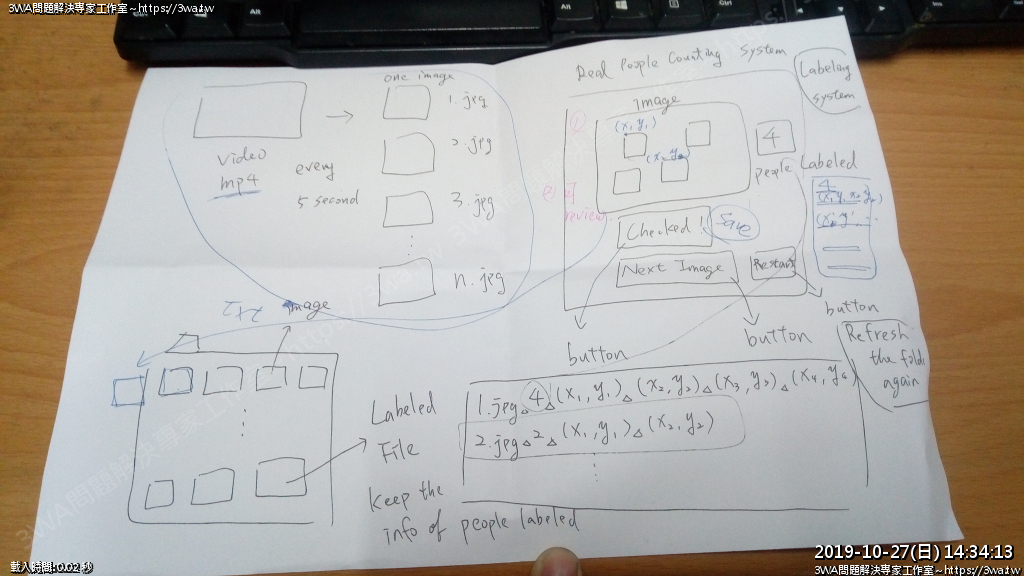 3WA問題解決專家工作室～https://3wa.tw
one image
video
mp4
every
5 second
1.jpg
2.jpg
3.jpg
n.jpg
Real People Counting system
Labeling
system
Image
(x1, y1)
4
people
Labeled
4
review
Checked!
Save
Next Image
Restart
button
button
button
Refresh
the folder
again
txt
image
Labeled
File
Keep the
info of people labeled
1.jpg△4△(x1,y1)△(x2,y2)△(x3,y3)△(x4,y4)
2.jpg△2△(x1,y1)△(x2,y2)
2019-10-27(日) 14:34:13
載入時間:0.02 秒
3WA問題解決專家工作室～https://3wa.tw